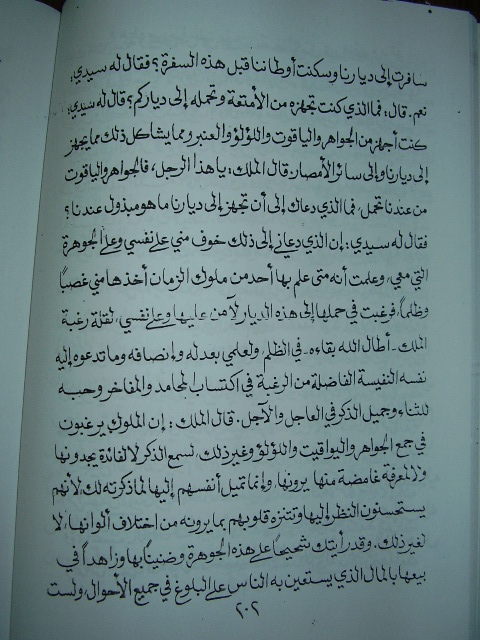 سافرت إلى ديارنا وسكنت أوطاننا قبل هذه السفرة؟ فقال له سيدي:
نعم. قال: فما الذي كنت تجهزه من الأمتعة وتحمله إلى دياركم؟ قال له سيدي:
كنت أجهز من الجواهر والياقوت واللؤلؤ والعنبر ومما يشاكل ذلك مما يجهز
إلى ديارنا وإلى سائر الأمصار. قال الملك: يا هذا الرجل، فالجواهر والياقوت
من عندنا تحمل، فما الذي دعاك إلى أن تجهز إلى ديارنا ما هو مبذول عندنا؟
فقال له سيدي: إن الذي دعاني إلى ذلك خوف مني على نفسي وعلى الجوهرة
التي معي، وعلمت أنه متى علم بها أحد من ملوك الزمان أخذها مني غصباً
وظلماً، فرغبت في حملها إلى هذه الديار لآمن عليها وعلى نفسي، لقلة رغبة
الملك - أطال الله بقاءه - في الظلم، ولعلمي بعدله وإنصافه وما تدعوه إليه
نفسه النفيسة الفاضلة من الرغبة في اكتساب المحامد والمفاخر وحبه
للثناء وجميل الذكر في العاجل والآجل. قال الملك: إن الملوك يرغبون
في جمع الجواهر واليواقيت واللؤلؤ وغير ذلك، لسمع الذكر لا لفائدة يجدونها
ولا لمعرفة غامضة منها يرونها، وإنما تميل أنفسهم إليها لما ذكرته لك، لأنهم
يستحسنون النظر إليها وتتنزه قلوبهم بما يرونه من اختلاف ألوانها، لا
لغير ذلك. وقد رأيتك شحيحاً على هذه الجوهرة وضنيناً بها وزاهداً في
بيعها بالمال الذي يستعين به الناس على البلوغ في جميع الأحوال، ولست
٢٠٢